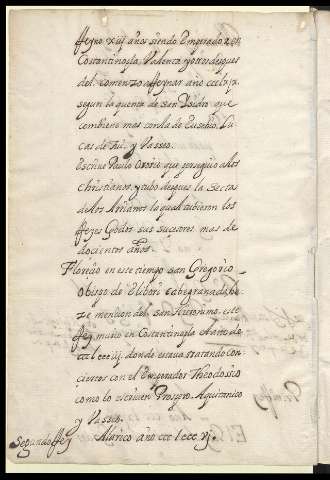 Reyno xiij años siendo Emperador en
Costantinopla Valente y otros despues
del. comenzo a Reynar año ccclxix
segun la quenta de san Ysidro que
combiene mas con la de Eusebio, Lu-
cas de Tui. y Vasseo.
Escriue Paulo Orosio que persiguio a los
Christianos, y tubo despues la Secta
de los Arrianos la qual tubieron los
Reyes Godos sus sucesores mas de
docientos años.
Florecio en este tiempo san Gregorio
obispo de Eliberi cabe granada, ha-
ze mencion del san Hieronimo. este
Rey murio en Costantinopla Año de
ccclxxxiij donde estaua tratando con-
ciertos con el Emperador Theodosio
como lo escriuen Prospero, Aquitanico
y Vasseo.
Segundo Rey Alarico año